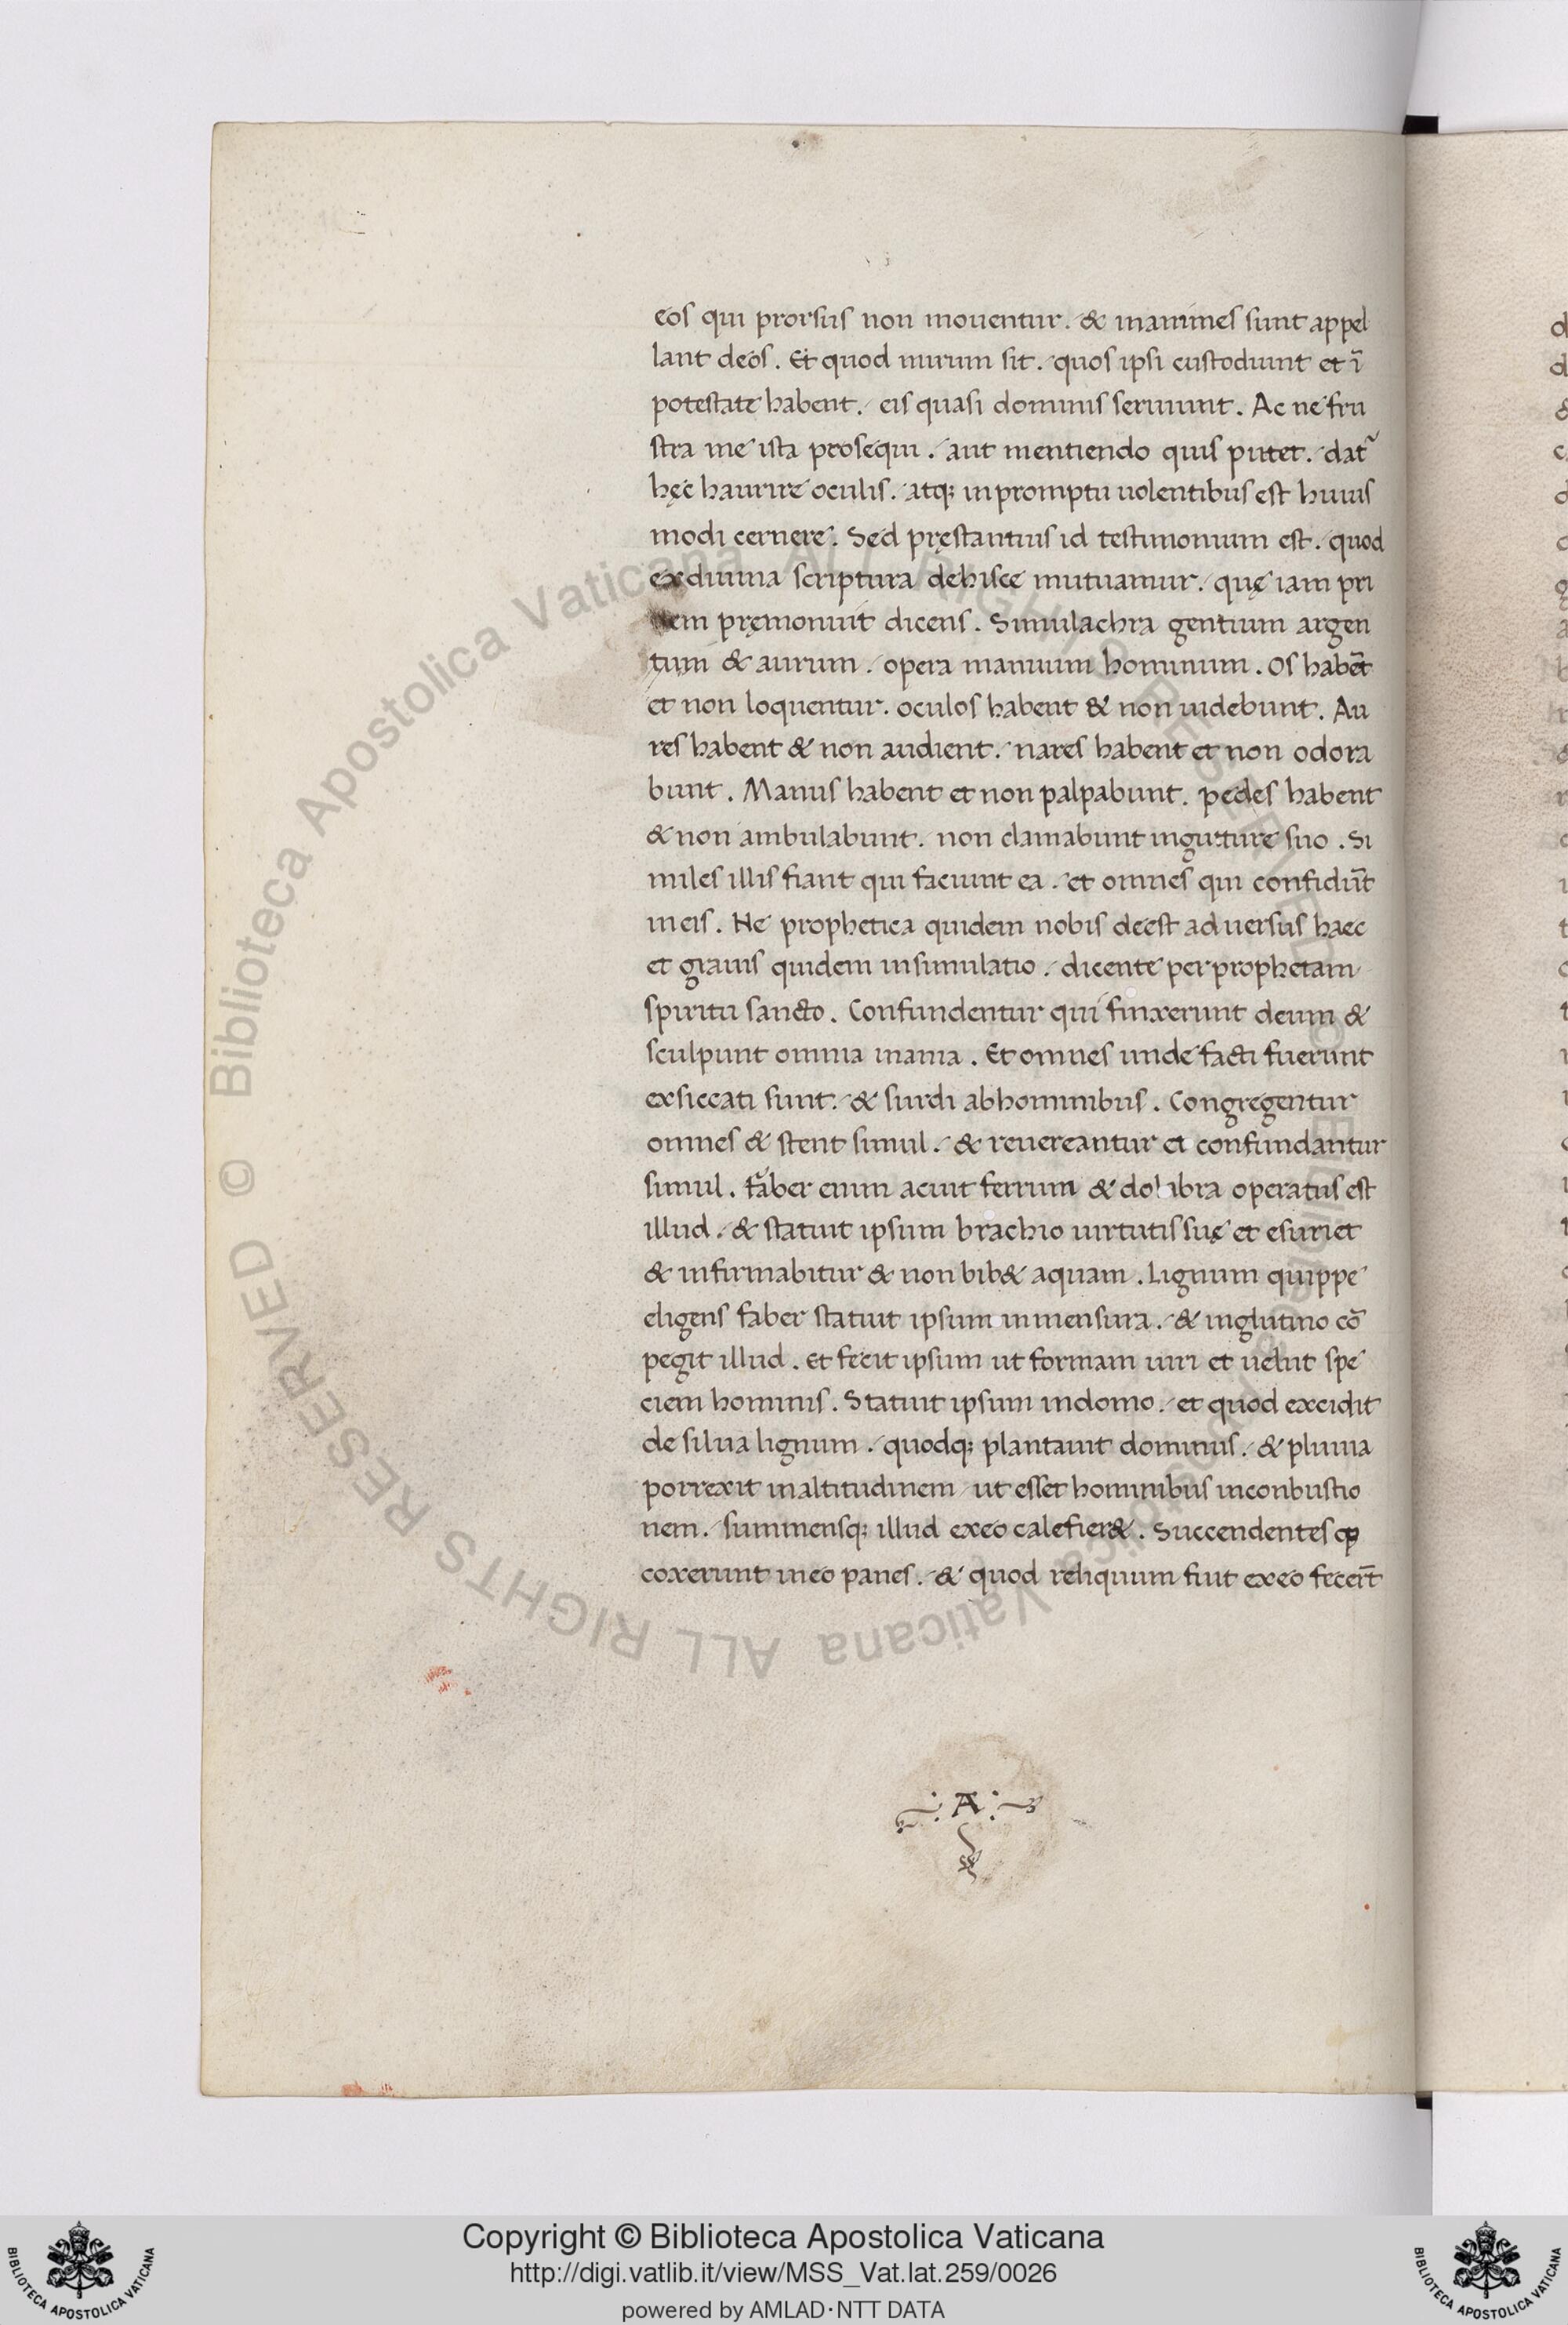 eos qui prorsus non mouentur. & inanimes sunt appel
lant deos. Et quod mirum sit. quos ipsi custodiunt et ĩ
potestate habent. eis quasi dominis seruiunt. Ac ne fru
stra me ista prosequi. aut mentiendo quis putet. datr̃
hęc haurire oculis. atq; in promptu uolentibus est huius
modi cernere. Sed pręstantius id testimonium est. quod
ex diuina scriptura dehisce mutuamur. quę iam pri
dem pręmonuit dicens. Simulachra gentium argen
tum & aurum. opera manuum hominum. Os habẽt
et non loquentur. oculos habent & non uidebunt. Au
res habent & non audient. nares habent et non odora
bunt. Manus habent et non palpabunt. pedes habent
& non ambulabunt. non clamabunt ingutture suo. Si
miles illis fiant qui faciunt ea. et omnes qui confidũt
ineis. Ne prophetica quidem nobis deest aduersus haec
et grauis quidem insimulatio. dicente per prophetam
spiritu sancto. Confundentur qui finxerunt deum &
sculpunt omnia inania. Et omnes unde facti fuerunt
exsiccati sunt. & surdi abhominibus. Congregentur
omnes & stent simul. & reuereantur et confundantur
simul. faber enim acuit ferrum & dolabra operatus est
illud. & statuit ipsum brachio uirtutis suę et esuriet
& infirmabitur & non bib& aquam. Lignum quippe
eligens faber statuit ipsum inmensura. & inglutino cõ
pegit illud. Et fecit ipsum ut formam uiri et uelut spe
ciem hominis. Statuit ipsum indomo. et quod excidit
de silua lignum. quodq; plantauit dominus. & pluuia
porrexit inaltitudinem ut esset hominibus inconbustio
nem. summensq; illud exeo calefier&. Succendentesqꝫ
coxerunt ineo panes. & quod reliquum fuit exeo fecer̃t
A
© Biblioteca Apostolica Vaticana ALL RIGHTS RESERVED © Biblioteca Apostolica Vaticana ALL RIGHTS RESERVED
Copyright © Biblioteca Apostolica Vaticana
http://digi.vatlib.it/view/MSS_Vat.lat.259/0026
powered by AMLAD·NTT DATA
BIBLIOTECA APOSTOLICA VATICANA
BIBLIOTECA APOSTOLICA VATICANA